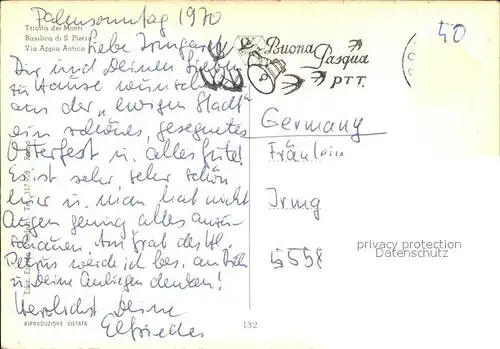 Palmsonntag 1970
Trinità dei Monti
Basilica di S. Pietro
Via Appia Antica
Liebe Irmgard
Dir und Deinen Lieben
zu Hause wünsch
aus der „ewigen Stadt"
ein schönes, gesegnetes
Osterfest u. alles Gute!
Es ist sehr, sehr schön
hier u. man hat nicht
Augen genug alles anzu-
schauen. Am Grab des Hl.
Petrus werde ich bes. an Dich
u. Deine Anliegen denken!
Herzlichst Deine
Elfriede
RIPRODUZIONE VIETATA
132
Buona
Pasqua
PTT.
40
Germany
Fräulein
Irmg
5558
privacy protection
Datenschutz